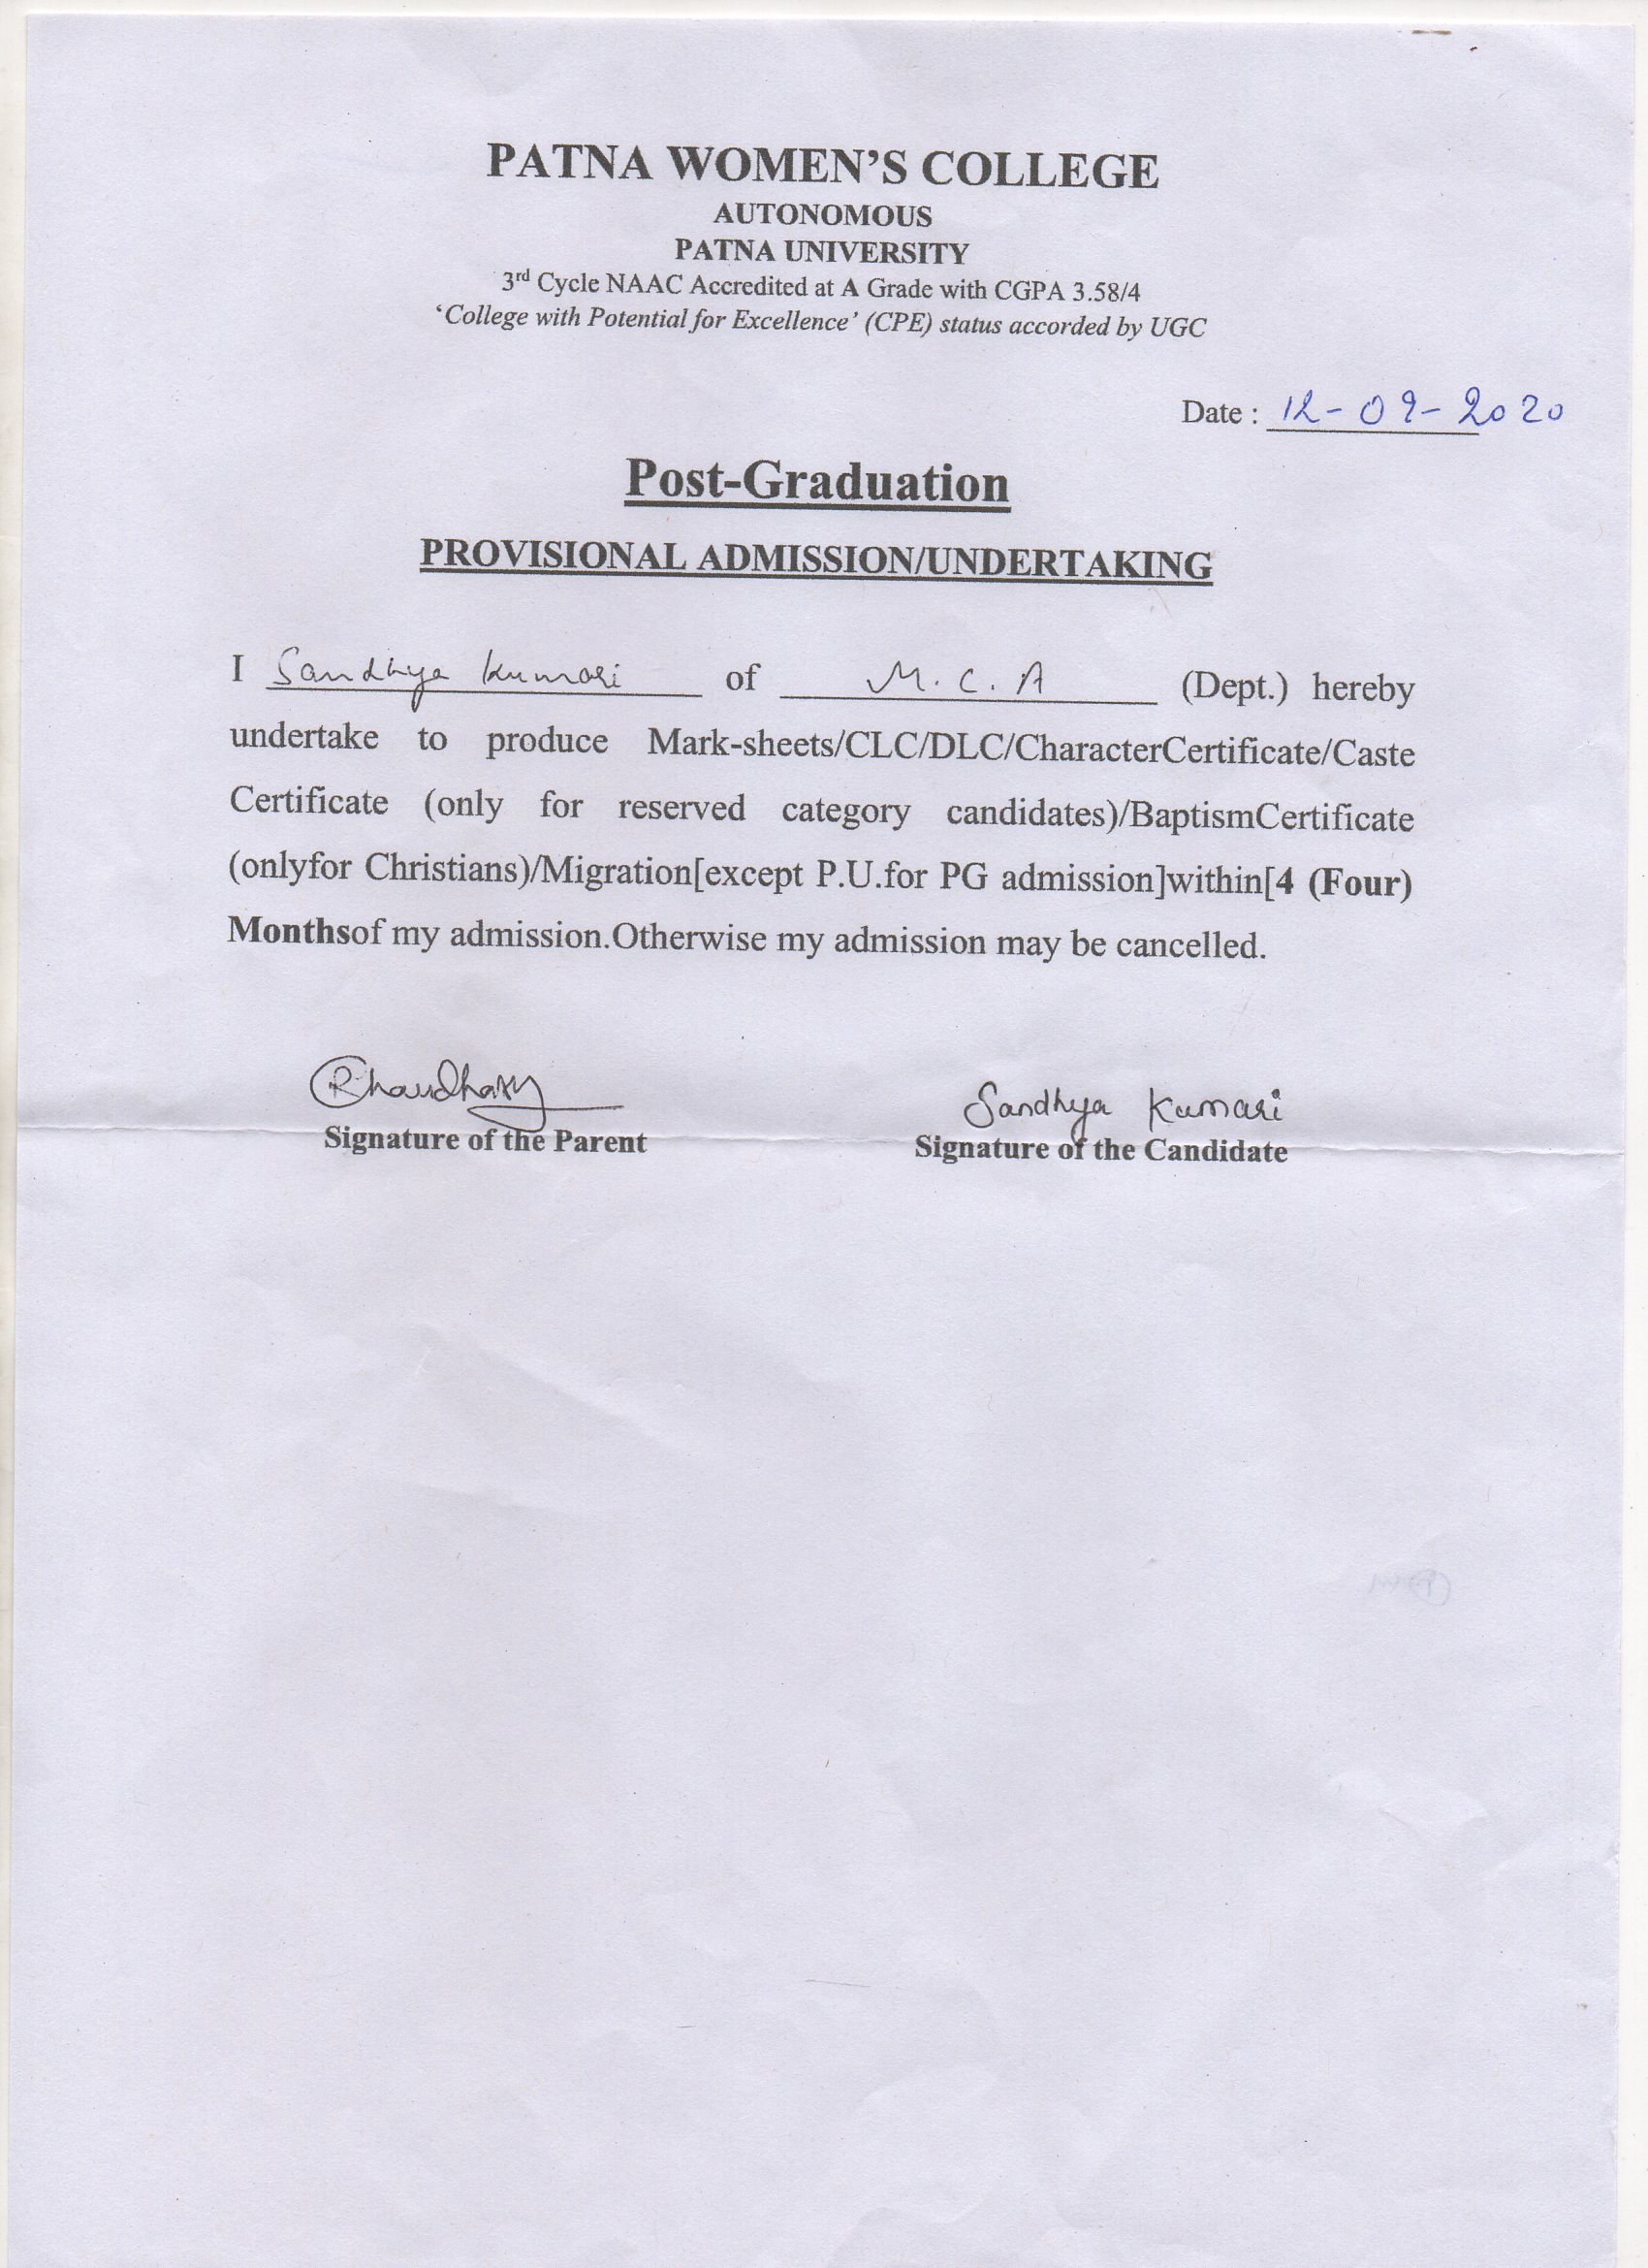 PATNA WOMEN'S COLLEGE
AUTONOMOUS
PATNA UNIVERSITY
3rd Cycle NAAC Accredited at A Grade with CGPA 3.58/4
‘College with Potential for Excellence’ (CPE) status accorded by UGC
Date : 12-09-2020
Post-Graduation
PROVISIONAL ADMISSION/UNDERTAKING
I Sandhya Kumari of M.C.A (Dept.) hereby
undertake to produce Mark-sheets/CLC/DLC/CharacterCertificate/Caste
Certificate (only for reserved category candidates)/BaptismCertificate
(onlyfor Christians)/Migration[except P.U.for PG admission]within[4 (Four)
Monthsof my admission.Otherwise my admission may be cancelled.
Sandhya Kumari
Signature of the Parent Signature of the Candidate